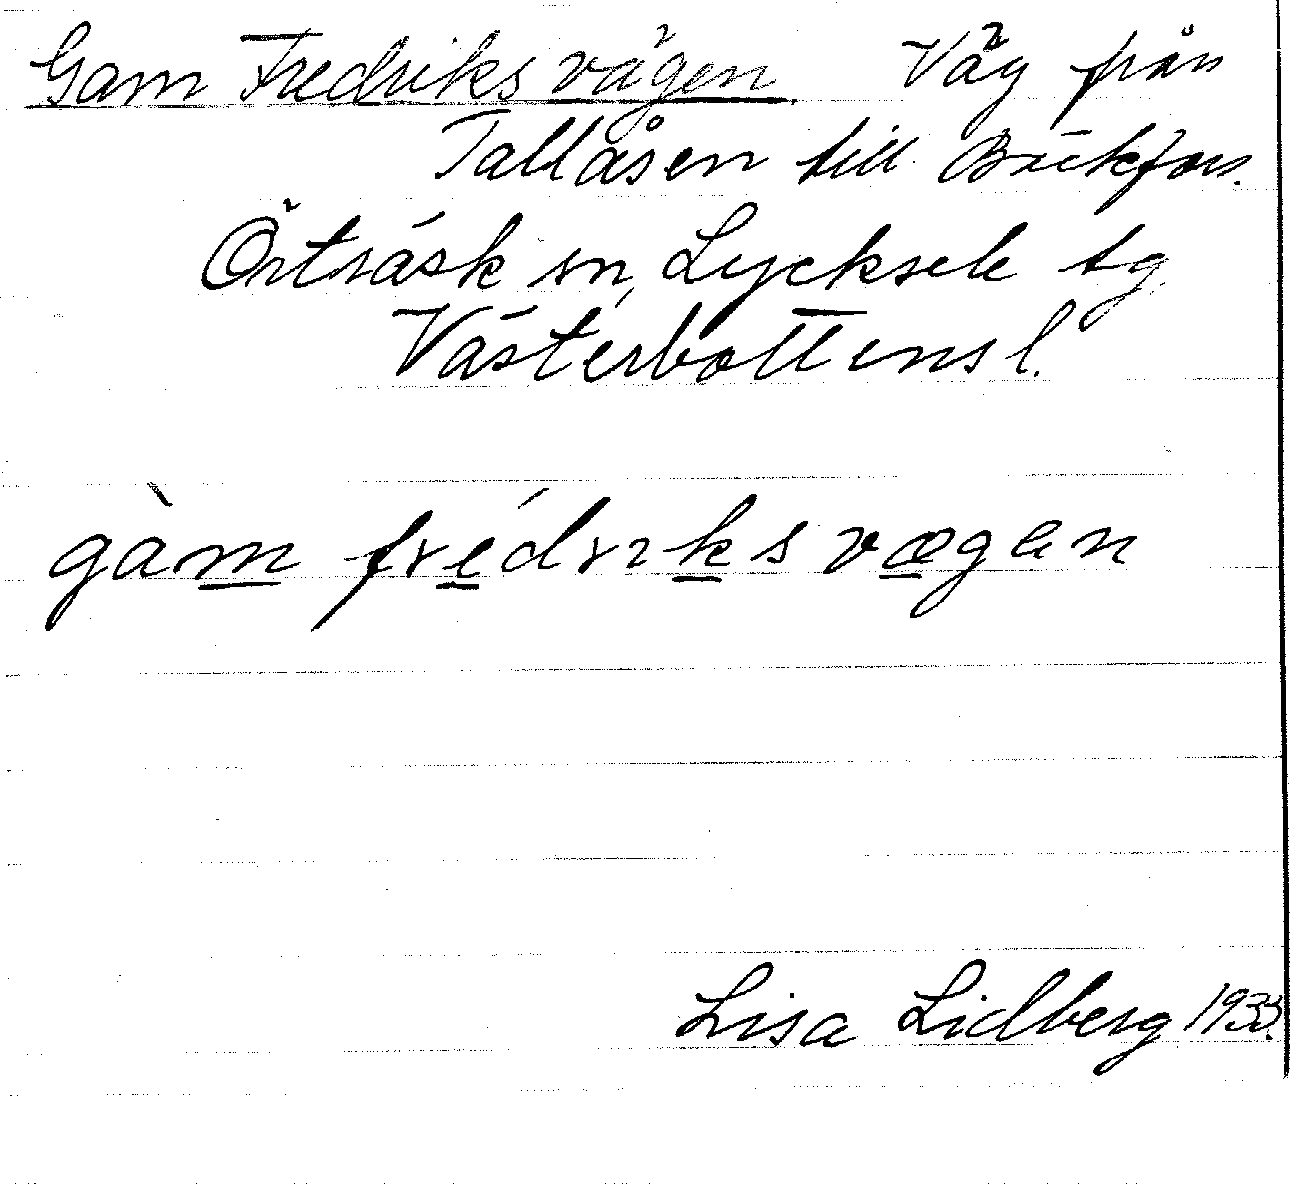 Gam Fredriks vägen. Väg från
Tallåsen till Bäckfors.
Örträsk sn, Lycksele tg
Västerbottens l.
gàm frédrıks vægen
Lisa Lidberg 1933.